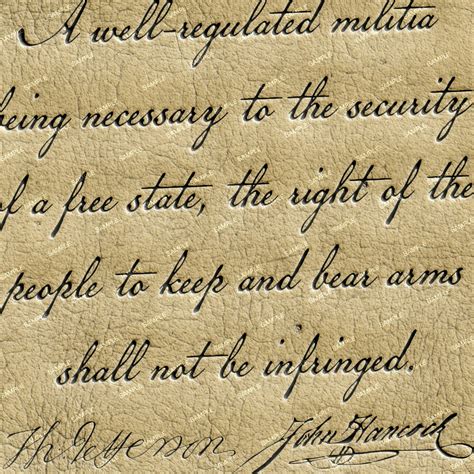 A well-regulated militia
being necessary to the security
of a free state, the right of the
people to keep and bear arms
shall not be infringed.
Th Jefferson John Hancock